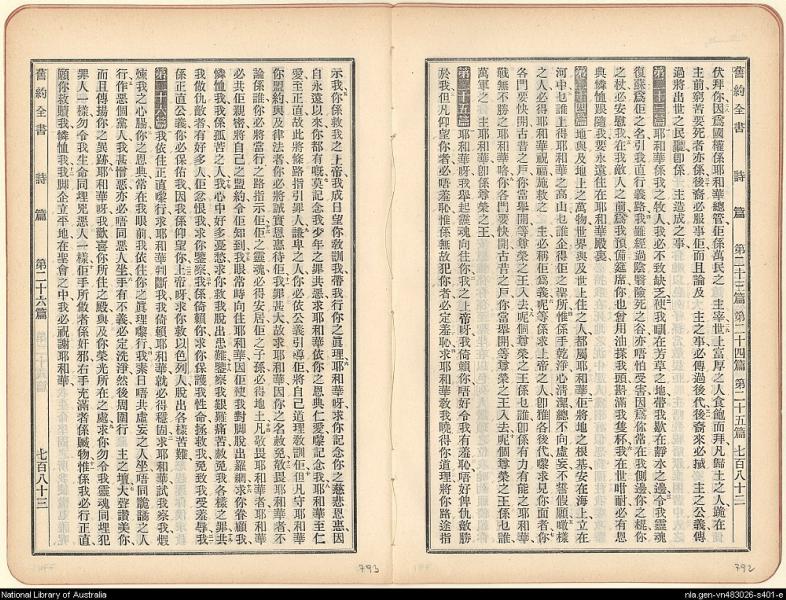 舊約全書 詩篇 第二十三篇 第二十四篇 第二十五篇 七百八十二
伏拜你因爲國權係耶和華總管佢係萬民之 主宰世上富厚之人食飽而拜凡歸土之人跪在
主前窮苦要死者亦係後裔必服事佢而且論及 主之事必傳過後代後裔來必拭 主之公義傳
過將出世之民卽係 主造成之事
第二十三篇 耶和華係我之牧人我必不致缺乏使我瞓在芳草之地帶我歇在靜水之邊令我靈魂
復蘇爲佢之名引我直行義路我雖經過陰翳險死之谷亦唔怕受害因爲你常在我側邊你之棍你
之杖必安慰我在我敵人之前爲我預備筵席你也曾用油搽我頭斟滿我隻杯我在世咁耐必有恩
典憐恤跟隨我要永遠住在耶和華殿裏
第二十四篇 地與及地上之萬物世界與及世上住之人都屬耶和華佢將地之根基安在海上立在
河中乜誰上得耶和華之高山乜誰企得佢之聖所惟係手乾淨心清潔總不向虛妄不誓假願噉樣
之人必得耶和華祝福施救之 主必稱佢爲義呢等係求上帝之人卽雅各後代嚟求見你面者你
各門要快開古昔之戶你當舉開等尊榮之王入去呢個尊榮之王係乜誰卽係有力有能之耶和華
戰無不勝之耶和華咯你各門要快開古昔之戶你當舉開等尊榮之王入去呢個尊榮之王係乜誰
萬軍之 主耶和華卽係尊榮之王
第二十五篇 耶和華呀我舉起靈魂向住你我之上帝呀我倚賴你唔好令我有羞恥唔好俾仇敵勝
於我但凡仰望你者必唔羞恥惟係無故犯你者必定羞恥求耶和華敎我曉得你道理將你路途指
792
示我你係救我之上帝我成日望你敎訓我帶我行你之眞理耶和華呀求你記念你之慈悲恩惠因
自永遠以來你都有嘅莫記念我少年之罪共惡求耶和華依你之恩典仁愛嚟記念我耶和華至仁
愛至正直故此將條路指引罪人謙卑之人你必依公義引導佢將自己道理敎訓佢但凡守耶和華
你盟約與及律法者你必將誠實恩惠待佢我罪甚大故求耶和華因你之名赦免敬畏耶和華者不
論係誰你必將當行之路指示佢佢之靈魂必得安居佢之子孫必得地土凡敬畏耶和華者耶和華
必共佢親密將自己之盟約令佢知到我眼常時向住耶和華因佢使我對脚脫出羅網求你眷顧我
憐恤我我係孤苦之人我心中好多憂愁求你救我脫出患難鑒察我艱難痛苦赦免我各樣之罪共
我做仇敵者有好多人佢忿恨我求你鑒察我係倚賴你求你保護我性命拯救我免致我受羞辱我
係正直公義你必保佑我因我係仰望你上帝呀求你救以色列人脫出各樣苦難
第二十六篇 我依住正直嚟行求耶和華判斷我我倚賴耶和華就必得穩固求耶和華試我察我煅
煉我之心腸你之恩典常在我眼前我依住你之眞理嚟行我素日唔共虛妄之人坐唔同詭譎之人
行作惡個黨人我甚憎惡亦必唔同惡人坐手有不義必定洗淨然後周圍行 主之壇大聲讚美你
而且傳揚你之異跡耶和華呀我歡喜你所住之殿與及你榮光所在之處求你勿令我靈魂同埋犯
罪人一樣勿令我生命同埋兇惡人一樣佢手所做者係奸邪右手充滿者係贓物惟係我必行正直
願你救贖我憐恤我我脚企立平地在聖會之中我必祝謝耶和華
舊約全書 詩篇 第二十六篇 七百八十三
793
National Library of Australia
nla.gen-vn483026-s401-e